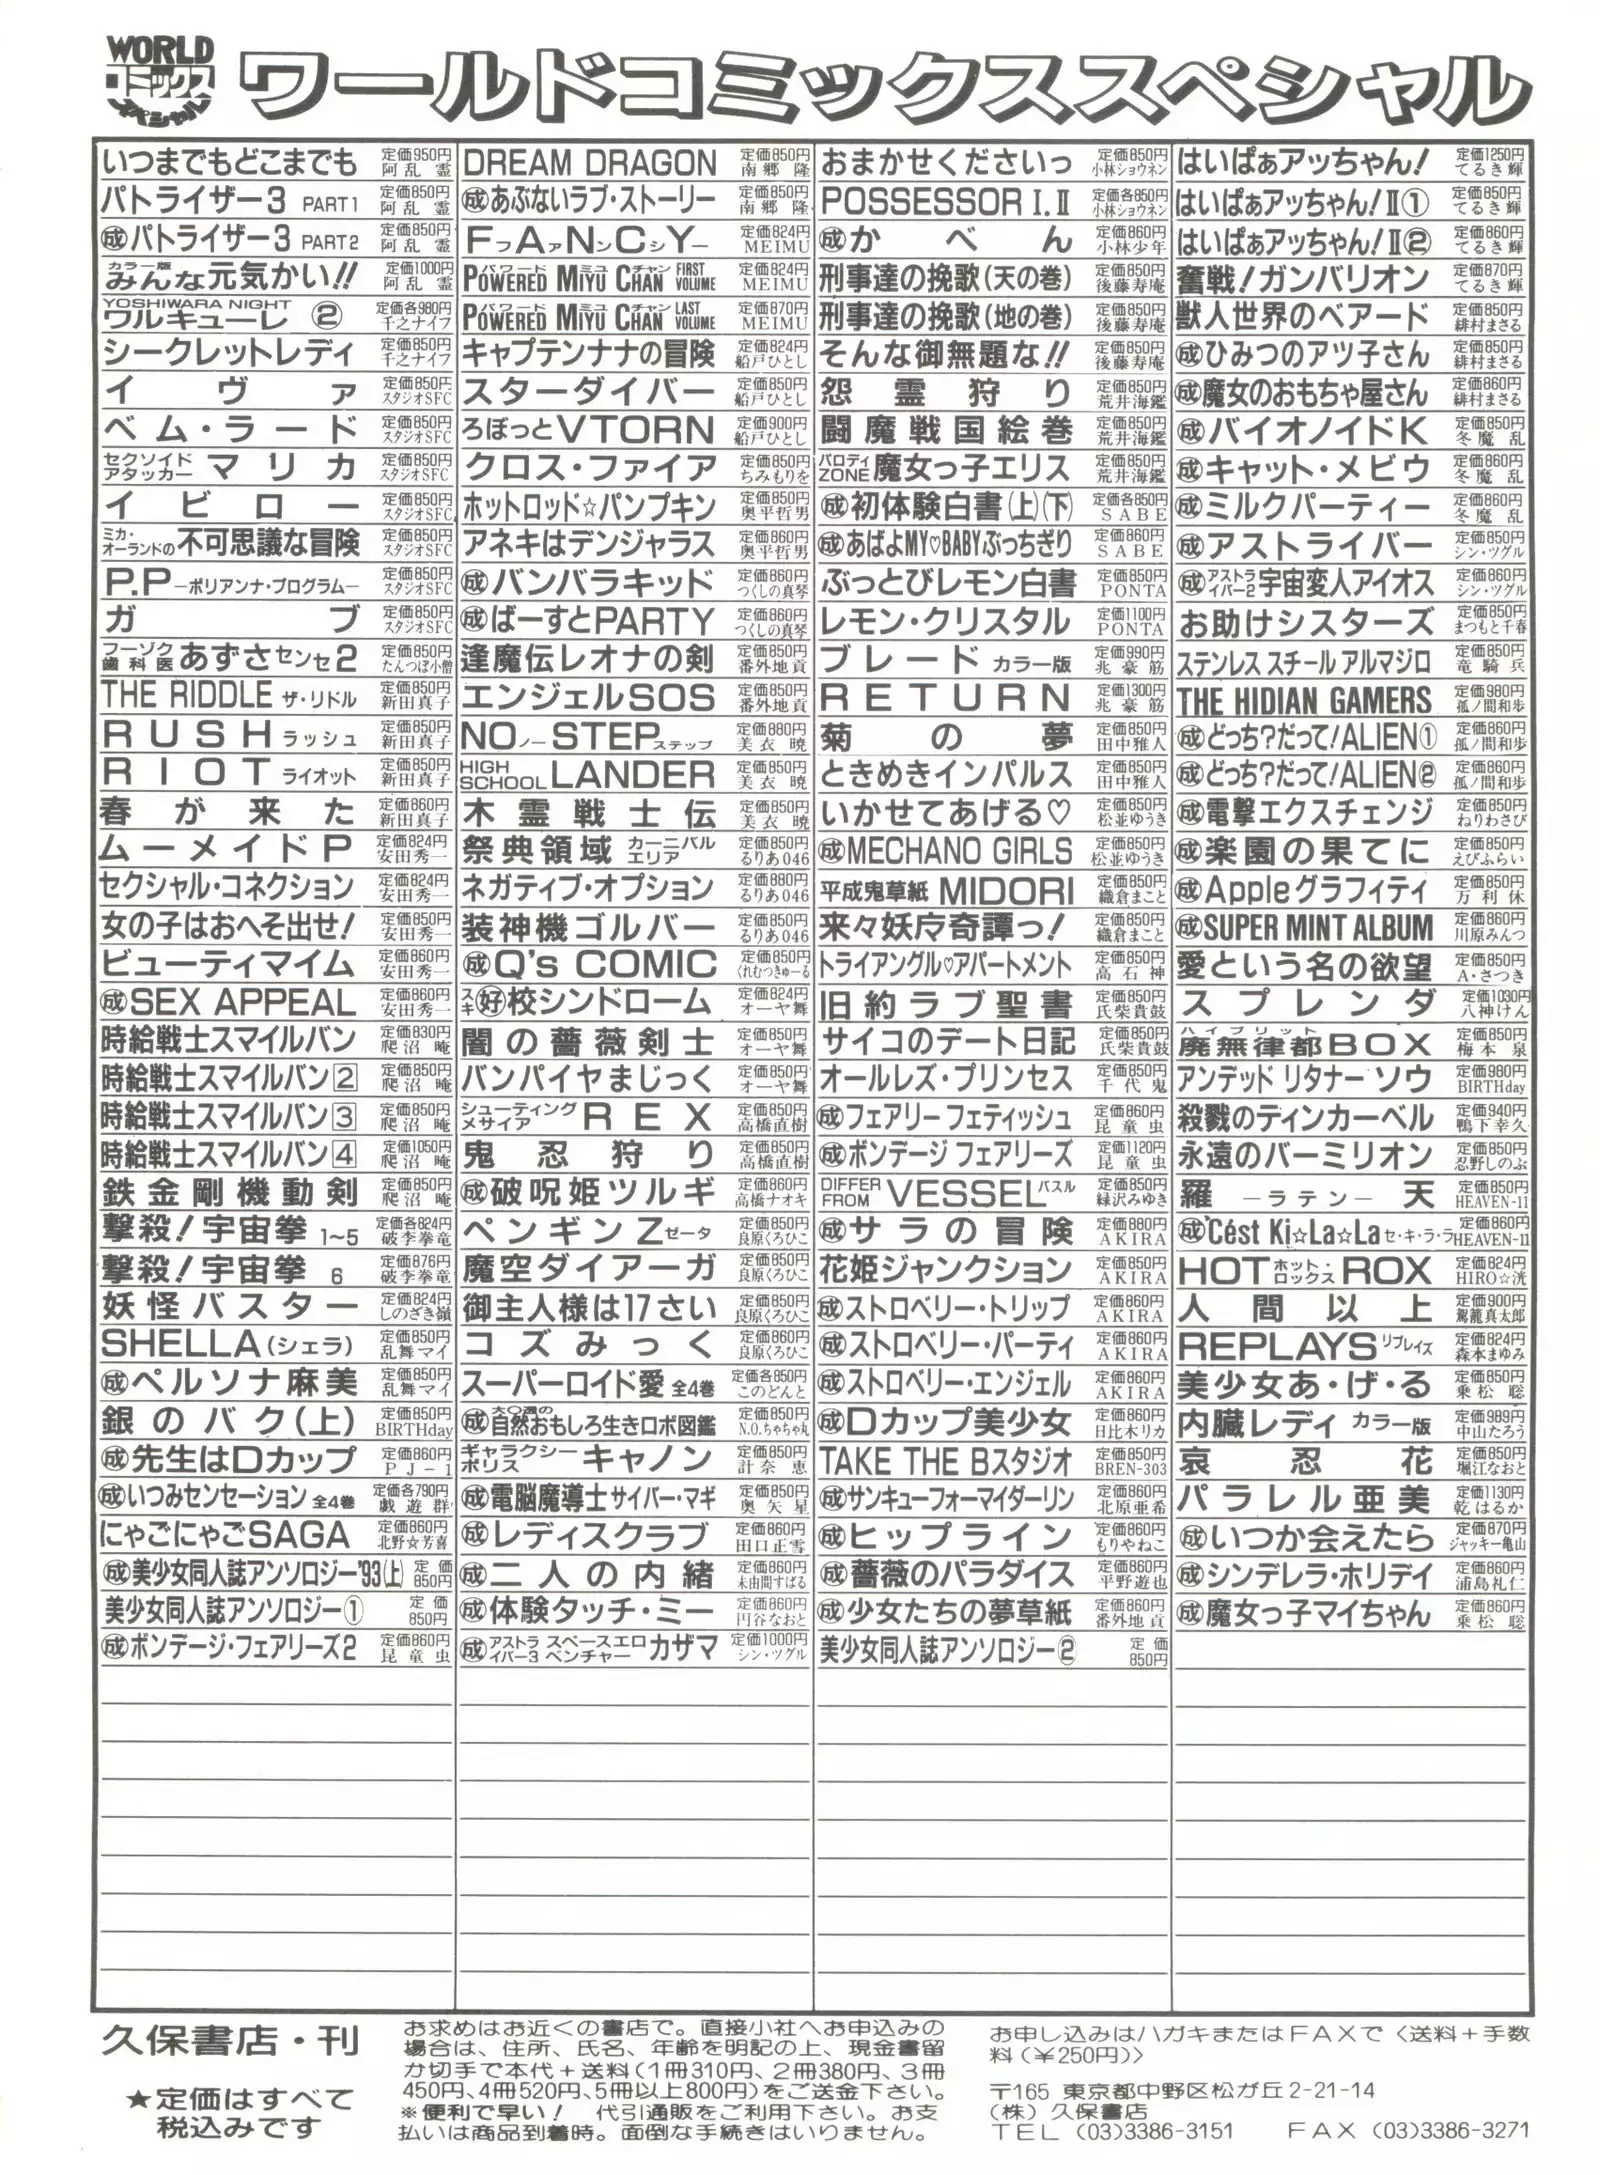 WORLD コミックス スペシャル
ワールドコミックススペシャル
いつまでもどこまでも 定価950円 阿乱霊
パトライザー3 PART1 定価850円 阿乱霊
㊛パトライザー3 PART2 定価850円 阿乱霊
カラー版 みんな元気かい!! 定価1000円 阿乱霊
YOSHIWARA NIGHT ワルキューレ ② 定価各980円 千之ナイフ
シークレットレディ 定価850円 千之ナイフ
イヴァ 定価850円 スタジオSFC
ベム・ラード 定価850円 スタジオSFC
セクソイドアタッカー マリカ 定価850円 スタジオSFC
イビロー 定価850円 スタジオSFC
ミカ・オーランドの不可思議な冒険 定価850円 スタジオSFC
P.P ―ポリアンナ・プログラム― 定価850円 スタジオSFC
ガブ 定価850円 スタジオSFC
フーゾク歯科医 あずさセンセ2 定価850円 たんつぼ小僧
THE RIDDLE ザ・リドル 定価850円 新田真子
RUSH ラッシュ 定価850円 新田真子
RIOT ライオット 定価850円 新田真子
春が来た 定価860円 新田真子
ムーメイドP 定価824円 安田秀一
セクシャル・コネクション 定価824円 安田秀一
女の子はおへそ出せ! 定価850円 安田秀一
ビューティマイム 定価860円 安田秀一
成 SEX APPEAL 定価860円 安田秀一
時給戦士スマイルバン 定価830円 爬沼庵
時給戦士スマイルバン2 定価850円 爬沼庵
時給戦士スマイルバン3 定価850円 爬沼庵
時給戦士スマイルバン4 定価1050円 爬沼庵
鉄金剛機動剣 定価850円 爬沼庵
撃殺!宇宙拳 1~5 定価各824円 破李拳竜
撃殺!宇宙拳 6 定価876円 破李拳竜
妖怪バスター 定価824円 しのざき嶺
SHELLA(シェラ) 定価850円 乱舞マイ
成 ペルソナ麻美 定価850円 乱舞マイ
銀のバク(上) 定価850円 BIRTHday
成 先生はDカップ 定価860円 PJ-1
成 いつみセンセーション 全4巻 定価各790円 戯遊群
にゃごにゃごSAGA 定価860円 北野☆芳喜
成 美少女同人誌アンソロジー'93(上) 定価850円
美少女同人誌アンソロジー① 定価850円
成 ボンデージ・フェアリーズ2 定価860円 昆童虫
DREAM DRAGON 定価850円 南郷隆
成 あぶないラブ・ストーリー 定価850円 南郷隆
FANCY ファンシィー 定価824円 MEIMU
POWERED MIYU CHAN パワード ミユ チャン FIRST VOLUME 定価824円 MEIMU
POWERED MIYU CHAN パワード ミユ チャン LAST VOLUME 定価870円 MEIMU
キャプテンナナの冒険 定価824円 船戸ひとし
スターダイバー 定価850円 船戸ひとし
ろぼっとVTORN 定価900円 船戸ひとし
クロス・ファイア 定価850円 ちみもりを
ホットロッド☆パンプキン 定価850円 奥平哲男
アネキはデンジャラス 定価860円 奥平哲男
成 バンバラキッド 定価860円 つくしの真琴
成 ばーすとPARTY 定価860円 つくしの真琴
逢魔伝レオナの剣 定価850円 番外地貢
エンジェルSOS 定価850円 番外地貢
NO ノー STEP ステップ 定価880円 美衣暁
HIGH SCHOOL LANDER 定価850円 美衣暁
木霊戦士伝 定価850円 美衣暁
祭典領域 カーニバルエリア 定価850円 るりあ046
ネガティブ・オプション 定価880円 るりあ046
装神機ゴルバー 定価850円 るりあ046
成 Q's COMIC 定価850円 くれむつきゅーる
スキ 好校シンドローム 定価824円 オーヤ舞
闇の薔薇剣士 定価850円 オーヤ舞
バンパイヤまじっく 定価850円 オーヤ舞
シューティングメサイア REX 定価850円 高橋直樹
鬼忍狩り 定価850円 高橋直樹
成 破呪姫ツルギ 定価860円 高橋ナオキ
ペンギンZ ゼータ 定価850円 良原くろひこ
魔空ダイアーガ 定価850円 良原くろひこ
御主人様は17さい 定価850円 良原くろひこ
コズみっく 定価860円 良原くろひこ
スーパーロイド愛 全4巻 定価各850円 このどんと
成 大〇選の 自然おもしろ生きロボ図鑑 定価850円 N.O.ちゃちゃ丸
ギャラクシーポリス キャノン 定価850円 計奈恵
成 電脳魔導士サイバー・マギ 定価860円 奥矢星
成 レディスクラブ 定価860円 田口正雪
成 二人の内緒 定価860円 未由間すばる
成 体験タッチ・ミー 定価860円 円谷なおと
成 アストライバー3 スペースエロベンチャー カザマ 定価1000円 シン・ツグル
おまかせくださいっ 定価850円 小林ショウネン
POSSESSOR I.II 定価各850円 小林ショウネン
成 かべん 定価860円 小林少年
刑事達の挽歌(天の巻) 定価850円 後藤寿庵
刑事達の挽歌(地の巻) 定価850円 後藤寿庵
そんな御無題な!! 定価850円 後藤寿庵
怨霊狩り 定価850円 荒井海鑑
闘魔戦国絵巻 定価850円 荒井海鑑
パロディZONE 魔女っ子エリス 定価850円 荒井海鑑
成 初体験白書(上)(下) 定価各850円 SABE
成 あばよMY♡BABYぶっちぎり 定価860円 SABE
ぶっとびレモン白書 定価850円 PONTA
レモン・クリスタル 定価1100円 PONTA
ブレード カラー版 定価990円 兆豪筋
RETURN 定価1300円 兆豪筋
菊の夢 定価850円 田中雅人
ときめきインパルス 定価850円 田中雅人
いかせてあげる♡ 定価850円 松並ゆうき
成 MECHANO GIRLS 定価850円 松並ゆうき
平成鬼草紙 MIDORI 定価850円 織倉まこと
来々妖庁奇譚っ! 定価850円 織倉まこと
トライアングル♡アパートメント 定価850円 高石神
旧約ラブ聖書 定価850円 氏柴貴鼓
サイコのデート日記 定価850円 氏柴貴鼓
オールレズ・プリンセス 定価850円 千代鬼
成 フェアリーフェティッシュ 定価860円 昆童虫
成 ボンデージ フェアリーズ 定価1120円 昆童虫
DIFFER FROM VESSEL バスル 定価850円 緑沢みゆき
成 サラの冒険 定価880円 AKIRA
花姫ジャンクション 定価850円 AKIRA
成 ストロベリー・トリップ 定価860円 AKIRA
成 ストロベリー・パーティ 定価860円 AKIRA
成 ストロベリー・エンジェル 定価860円 AKIRA
成 Dカップ美少女 定価860円 日比木リカ
TAKE THE Bスタジオ 定価850円 BREN-303
成 サンキューフォーマイダーリン 定価860円 北原亜希
成 ヒップライン 定価860円 もりやねこ
成 薔薇のパラダイス 定価860円 平野遊也
成 少女たちの夢草紙 定価860円 番外地貢
美少女同人誌アンソロジー② 定価850円
はいぱぁアッちゃん! 定価1250円 てるき輝
はいぱぁアッちゃん!II① 定価850円 てるき輝
はいぱぁアッちゃん!II② 定価860円 てるき輝
奮戦!ガンバリオン 定価870円 てるき輝
獣人世界のベアード 定価850円 緋村まさる
成 ひみつのアツ子さん 定価850円 緋村まさる
成 魔女のおもちゃ屋さん 定価860円 緋村まさる
成 バイオノイドK 定価850円 冬魔乱
成 キャット・メビウ 定価860円 冬魔乱
成 ミルクパーティー 定価860円 冬魔乱
成 アストライバー 定価850円 シン・ツグル
成 アストライバー2 宇宙変人アイオス 定価860円 シン・ツグル
お助けシスターズ 定価850円 まつもと千春
ステンレススチールアルマジロ 定価850円 竜騎兵
THE HIDIAN GAMERS 定価980円 孤ノ間和歩
成 どっち?だって!ALIEN① 定価850円 孤ノ間和歩
成 どっち?だって!ALIEN② 定価860円 孤ノ間和歩
成 電撃エクスチェンジ 定価850円 ねりわさび
成 楽園の果てに 定価850円 えびふらい
成 Appleグラフィティ 定価850円 万利休
成 SUPER MINT ALBUM 定価860円 川原みんつ
愛という名の欲望 定価850円 A・さつき
スプレンダ 定価1030円 八神けん
ハイブリット 廃無律都BOX 定価850円 梅本泉
アンデッド リタナー ソウ 定価980円 BIRTHday
殺戮のティンカーベル 定価940円 鴨下幸久
永遠のバーミリオン 定価850円 忍野しのぶ
羅 ―ラテン― 天 定価850円 HEAVEN-11
成 'Cést Ki☆La☆La セ・キ・ラ・ラ 定価860円 HEAVEN-11
HOT ホット・ロックス ROX 定価824円 HIRO☆洸
人間以上 定価900円 駕籠真太郎
REPLAYS リプレイズ 定価824円 森本まゆみ
美少女あ・げ・る 定価850円 乗松聡
内臓レディ カラー版 定価989円 中山たろう
哀忍花 定価850円 堀江なおと
パラレル亜美 定価1130円 乾はるか
成 いつか会えたら 定価870円 ジャッキー亀山
成 シンデレラ・ホリデイ 定価860円 浦島礼仁
成 魔女っ子マイちゃん 定価860円 乗松聡
久保書店・刊
★定価はすべて
税込みです
お求めはお近くの書店で。直接小社へお申込みの
場合は、住所、氏名、年齢を明記の上、現金書留
か切手で本代+送料(1冊310円、2冊380円、3冊
450円、4冊520円、5冊以上800円)をご送金下さい。
※便利で早い! 代引通販をご利用下さい。お支
払いは商品到着時。面倒な手続きはいりません。
お申し込みはハガキまたはFAXで〈送料+手数
料(¥250円)〉
〒165 東京都中野区松が丘2-21-14
(株)久保書店
TEL (03)3386-3151 FAX (03)3386-3271